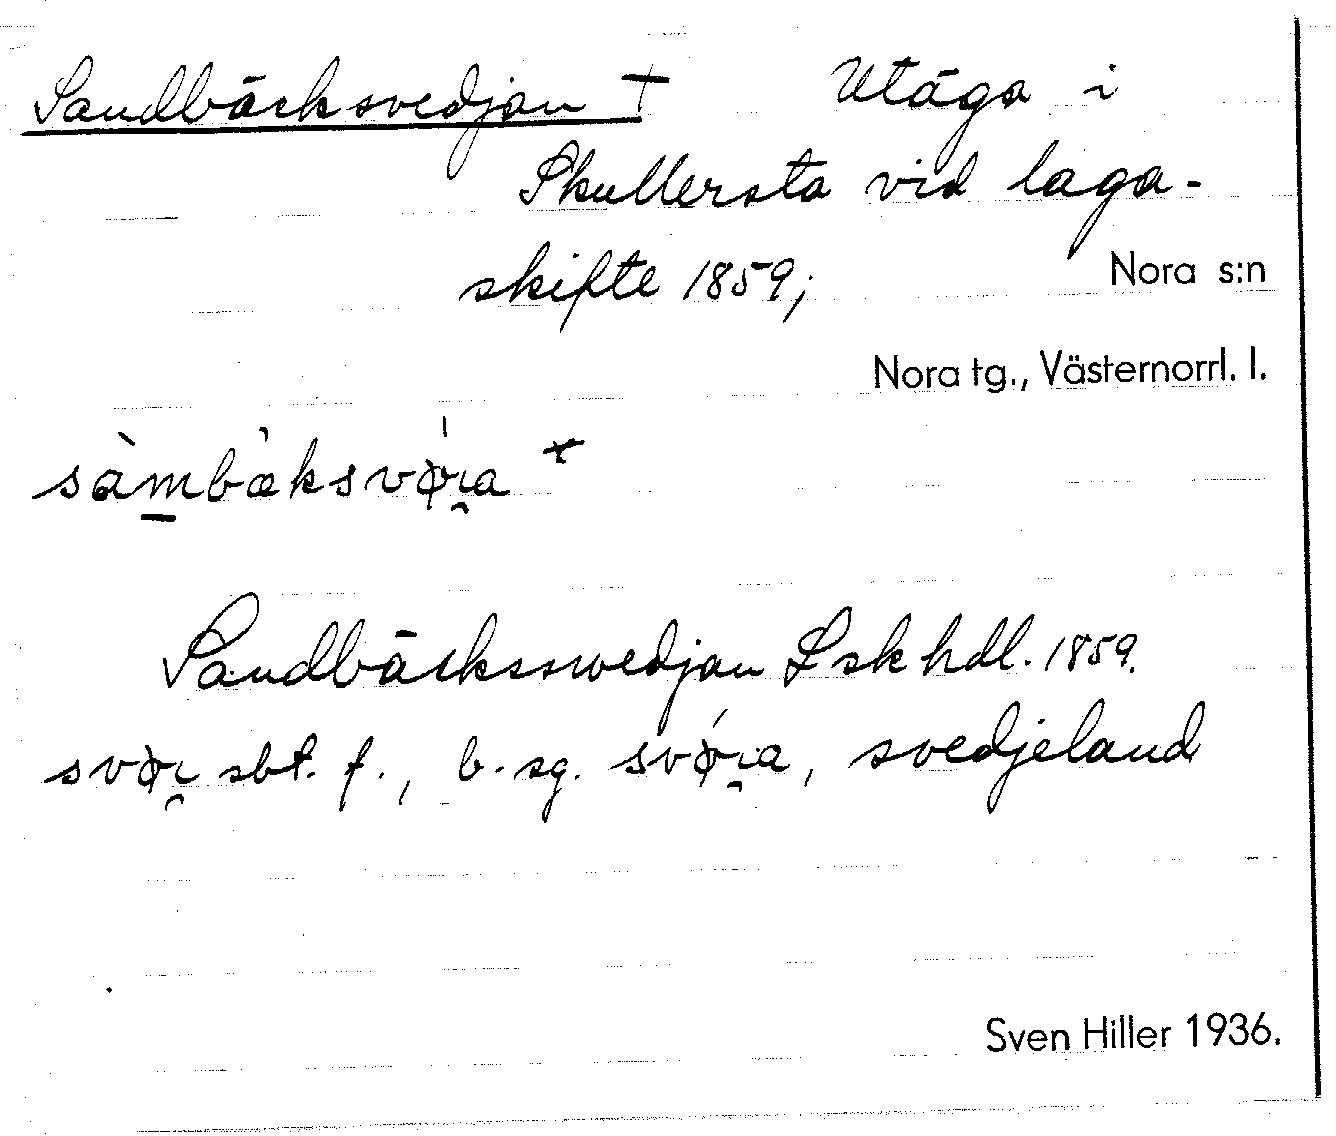 Sandbäcksvedjan † Utäga i
Skullersta vid laga-
skifte 1859; Nora s:n
Nora tg., Västernorrl. l.
sàmbàksvǿɩ̯a *
Sandbäckssvedjan Lskhdl. 1859.
svøɩ̯ sbt. f., b. sg. svǿɩ̯a, svedjeland
Sven Hiller 1936.